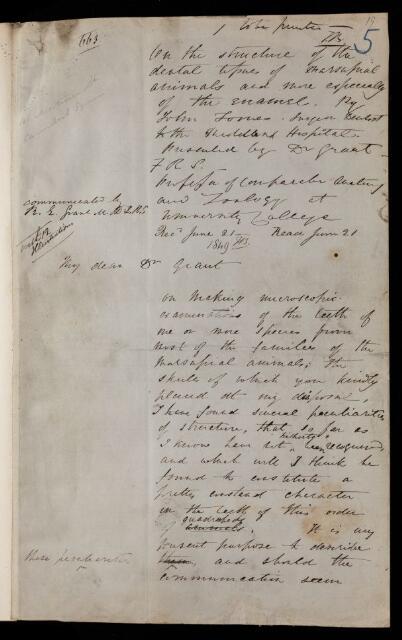 to be printed
Ms.
19
5
663
On the structure of the
dental tissues of Marsupial
animals and more especially
of the enamel. By
John Tomes. Surgeon Dentist
to the Middlesex Hospital.
Presented by Dr Grant
F.R.S.
Professor of Comparative Anatomy
and Zoology at
University College
communicated by
R. E. Grant M.D. F.R.S.
Recd June 21 Read June 21
1849
My dear Dr Grant
on making microscopic
examinations of the teeth of
one or more species from
most of the families of the
marsupial animals; the
skulls of which you kindly
placed at my disposal,
I have found several peculiarities
of structure, that so far as
I know have not hitherto been recognised,
and which will I think be
found to constitute a
pretty constant character
in the teeth of this order
of quadrupeds It is my
present purpose to describe
these peculiarities
them, and should the
communication seem